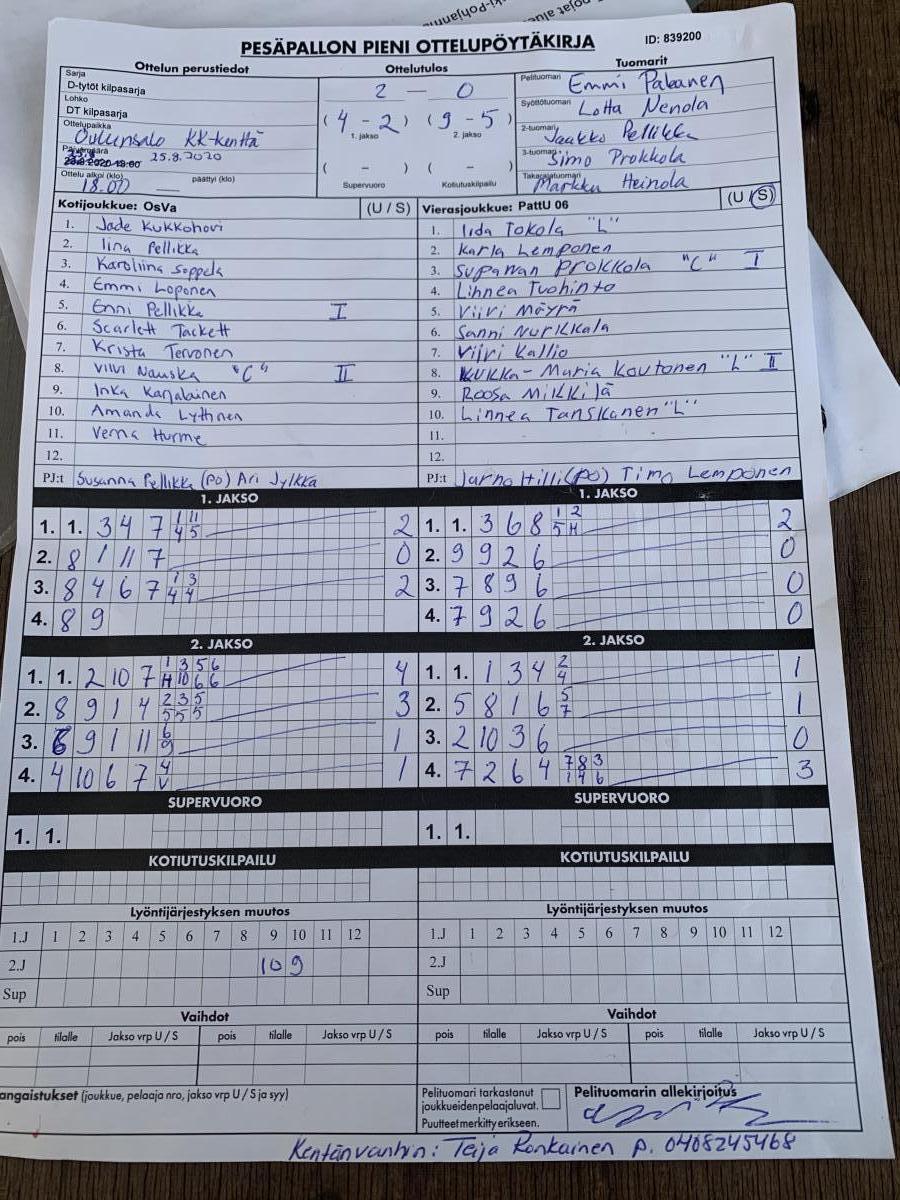 PESÄPALLON PIENI OTTELUPÖYTÄKIRJA
ID: 839200
Ottelun perustiedot
Sarja
D-tytöt kilpasarja
Lohko
DT kilpasarja
Ottelupaikka
Oulunsalo KK-kenttä
25.8.2020
Ottelu alkoi (klo) 18.00 päättyi (klo)
Ottelutulos
2 — 0
(4 - 2) (9 - 5)
1. jakso 2. jakso
( - ) ( - )
Supervuoro Kotiutuskilpailu
Tuomarit
Pelituomari Emmi Pakanen
Syöttötuomari Lotta Nenola
2-tuomari Jaakko Pellikka
3-tuomari Simo Prokkola
Takarajatuomari Markku Heinola
Kotijoukkue: OsVa (U / S)
1. Jade Kukkohovi
2. Iina Pellikka
3. Karoliina Soppela
4. Emmi Loponen
5. Enni Pellikka I
6. Scarlett Tackett
7. Krista Tervonen
8. Viivi Nauska "C" II
9. Inka Karjalainen
10. Amanda Lythnen
11. Verna Hurme
12.
PJ:t Susanna Pellikka (PO) Ari Jylkkä
Vierasjoukkue: PattU 06 (U / S)
1. Iida Tokola "L"
2. Karla Lemponen
3. Supawan Prokkola "C" I
4. Linnea Tuohinto
5. Viivi Mäyrä
6. Sanni Nurkkala
7. Viivi Kallio
8. Kukka-Maria Koutonen "L" II
9. Roosa Mikkilä
10. Linnea Tanskanen "L"
11.
12.
PJ:t Jarno Hilli (PO) Timo Lemponen
1. JAKSO
1. 1. 3 4 7 1 11 2
4 5
2. 8 1 11 7 0
3. 8 4 6 7 1 3 2
4 4
4. 8 9
1. JAKSO
1. 1. 3 6 8 1 2 2
5 H
2. 9 9 2 6 0
3. 7 8 9 6 0
4. 7 9 2 6 0
2. JAKSO
1. 1. 2 10 7 1 3 5 6 4
H 10 6 6
2. 8 9 1 4 2 3 5 3
5 5 5
3. 6 9 1 11 6 1
9
4. 4 10 6 7 4 1
V
2. JAKSO
1. 1. 1 3 4 2 1
4
2. 5 8 1 6 5 1
7
3. 2 10 3 6 0
4. 7 2 6 4 7 8 3 3
1 4 6
SUPERVUORO
1. 1.
SUPERVUORO
1. 1.
KOTIUTUSKILPAILU
KOTIUTUSKILPAILU
Lyöntijärjestyksen muutos
1.J 1 2 3 4 5 6 7 8 9 10 11 12
2.J 10 9
Sup
Lyöntijärjestyksen muutos
1.J 1 2 3 4 5 6 7 8 9 10 11 12
2.J
Sup
Vaihdot
pois tilalle Jakso vrp U / S pois tilalle Jakso vrp U / S
Vaihdot
pois tilalle Jakso vrp U / S pois tilalle Jakso vrp U / S
angaistukset (joukkue, pelaaja nro, jakso vrp U / S ja syy)
Pelituomari tarkastanut
joukkueiden pelaajaluvat.
Puutteet merkitty erikseen.
Pelituomarin allekirjoitus
Kentänvanhin: Teija Ronkainen p. 0408245468